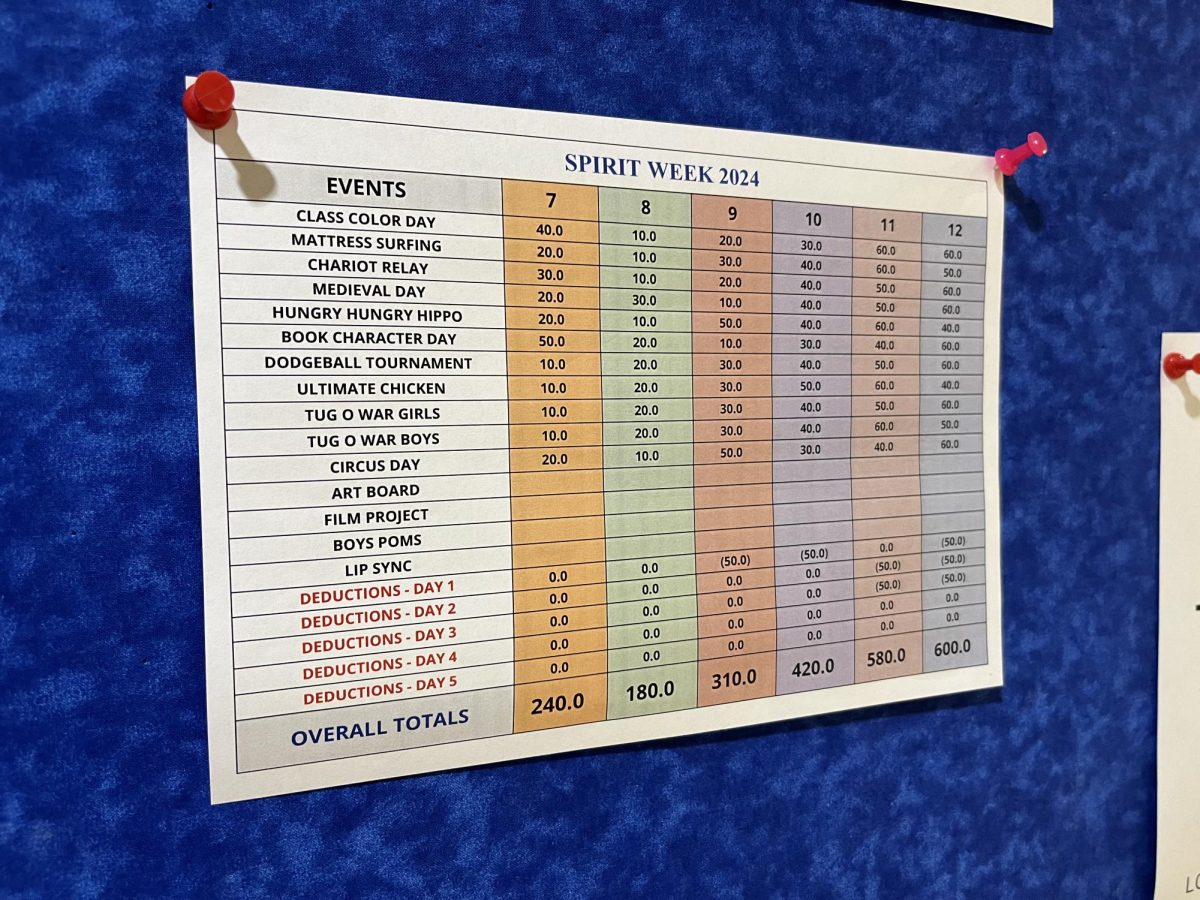 SPIRIT WEEK 2024
EVENTS 7 8 9 10 11 12
CLASS COLOR DAY 40.0 10.0 20.0 30.0 60.0 60.0
MATTRESS SURFING 20.0 10.0 30.0 40.0 60.0 50.0
CHARIOT RELAY 30.0 10.0 20.0 40.0 50.0 60.0
MEDIEVAL DAY 20.0 30.0 10.0 40.0 50.0 60.0
HUNGRY HUNGRY HIPPO 20.0 10.0 50.0 40.0 60.0 40.0
BOOK CHARACTER DAY 50.0 20.0 10.0 30.0 40.0 60.0
DODGEBALL TOURNAMENT 10.0 20.0 30.0 40.0 50.0 60.0
ULTIMATE CHICKEN 10.0 20.0 30.0 50.0 60.0 40.0
TUG O WAR GIRLS 10.0 20.0 30.0 40.0 50.0 60.0
TUG O WAR BOYS 10.0 20.0 30.0 40.0 60.0 50.0
CIRCUS DAY 20.0 10.0 50.0 30.0 40.0 60.0
ART BOARD
FILM PROJECT
BOYS POMS
LIP SYNC
DEDUCTIONS - DAY 1 0.0 0.0 (50.0) (50.0) 0.0 (50.0)
DEDUCTIONS - DAY 2 0.0 0.0 0.0 0.0 (50.0) (50.0)
DEDUCTIONS - DAY 3 0.0 0.0 0.0 0.0 (50.0) (50.0)
DEDUCTIONS - DAY 4 0.0 0.0 0.0 0.0 0.0 0.0
DEDUCTIONS - DAY 5 0.0 0.0 0.0 0.0 0.0 0.0
OVERALL TOTALS 240.0 180.0 310.0 420.0 580.0 600.0